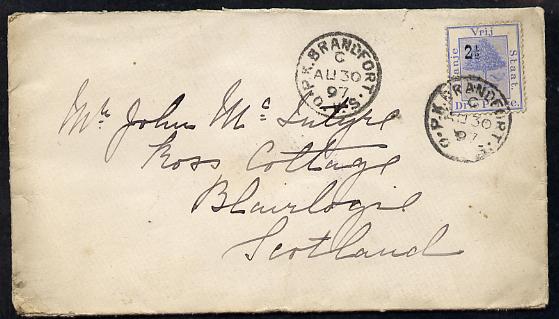 P.K. BRANDFORT. O.V.S.
C
AU 30
97
Vrij
Staat.
2½
P.K. BRANDFORT.
C
AU 30
97
Mr. John McIntyre
Ross Cottage
Blairlogie
Scotland